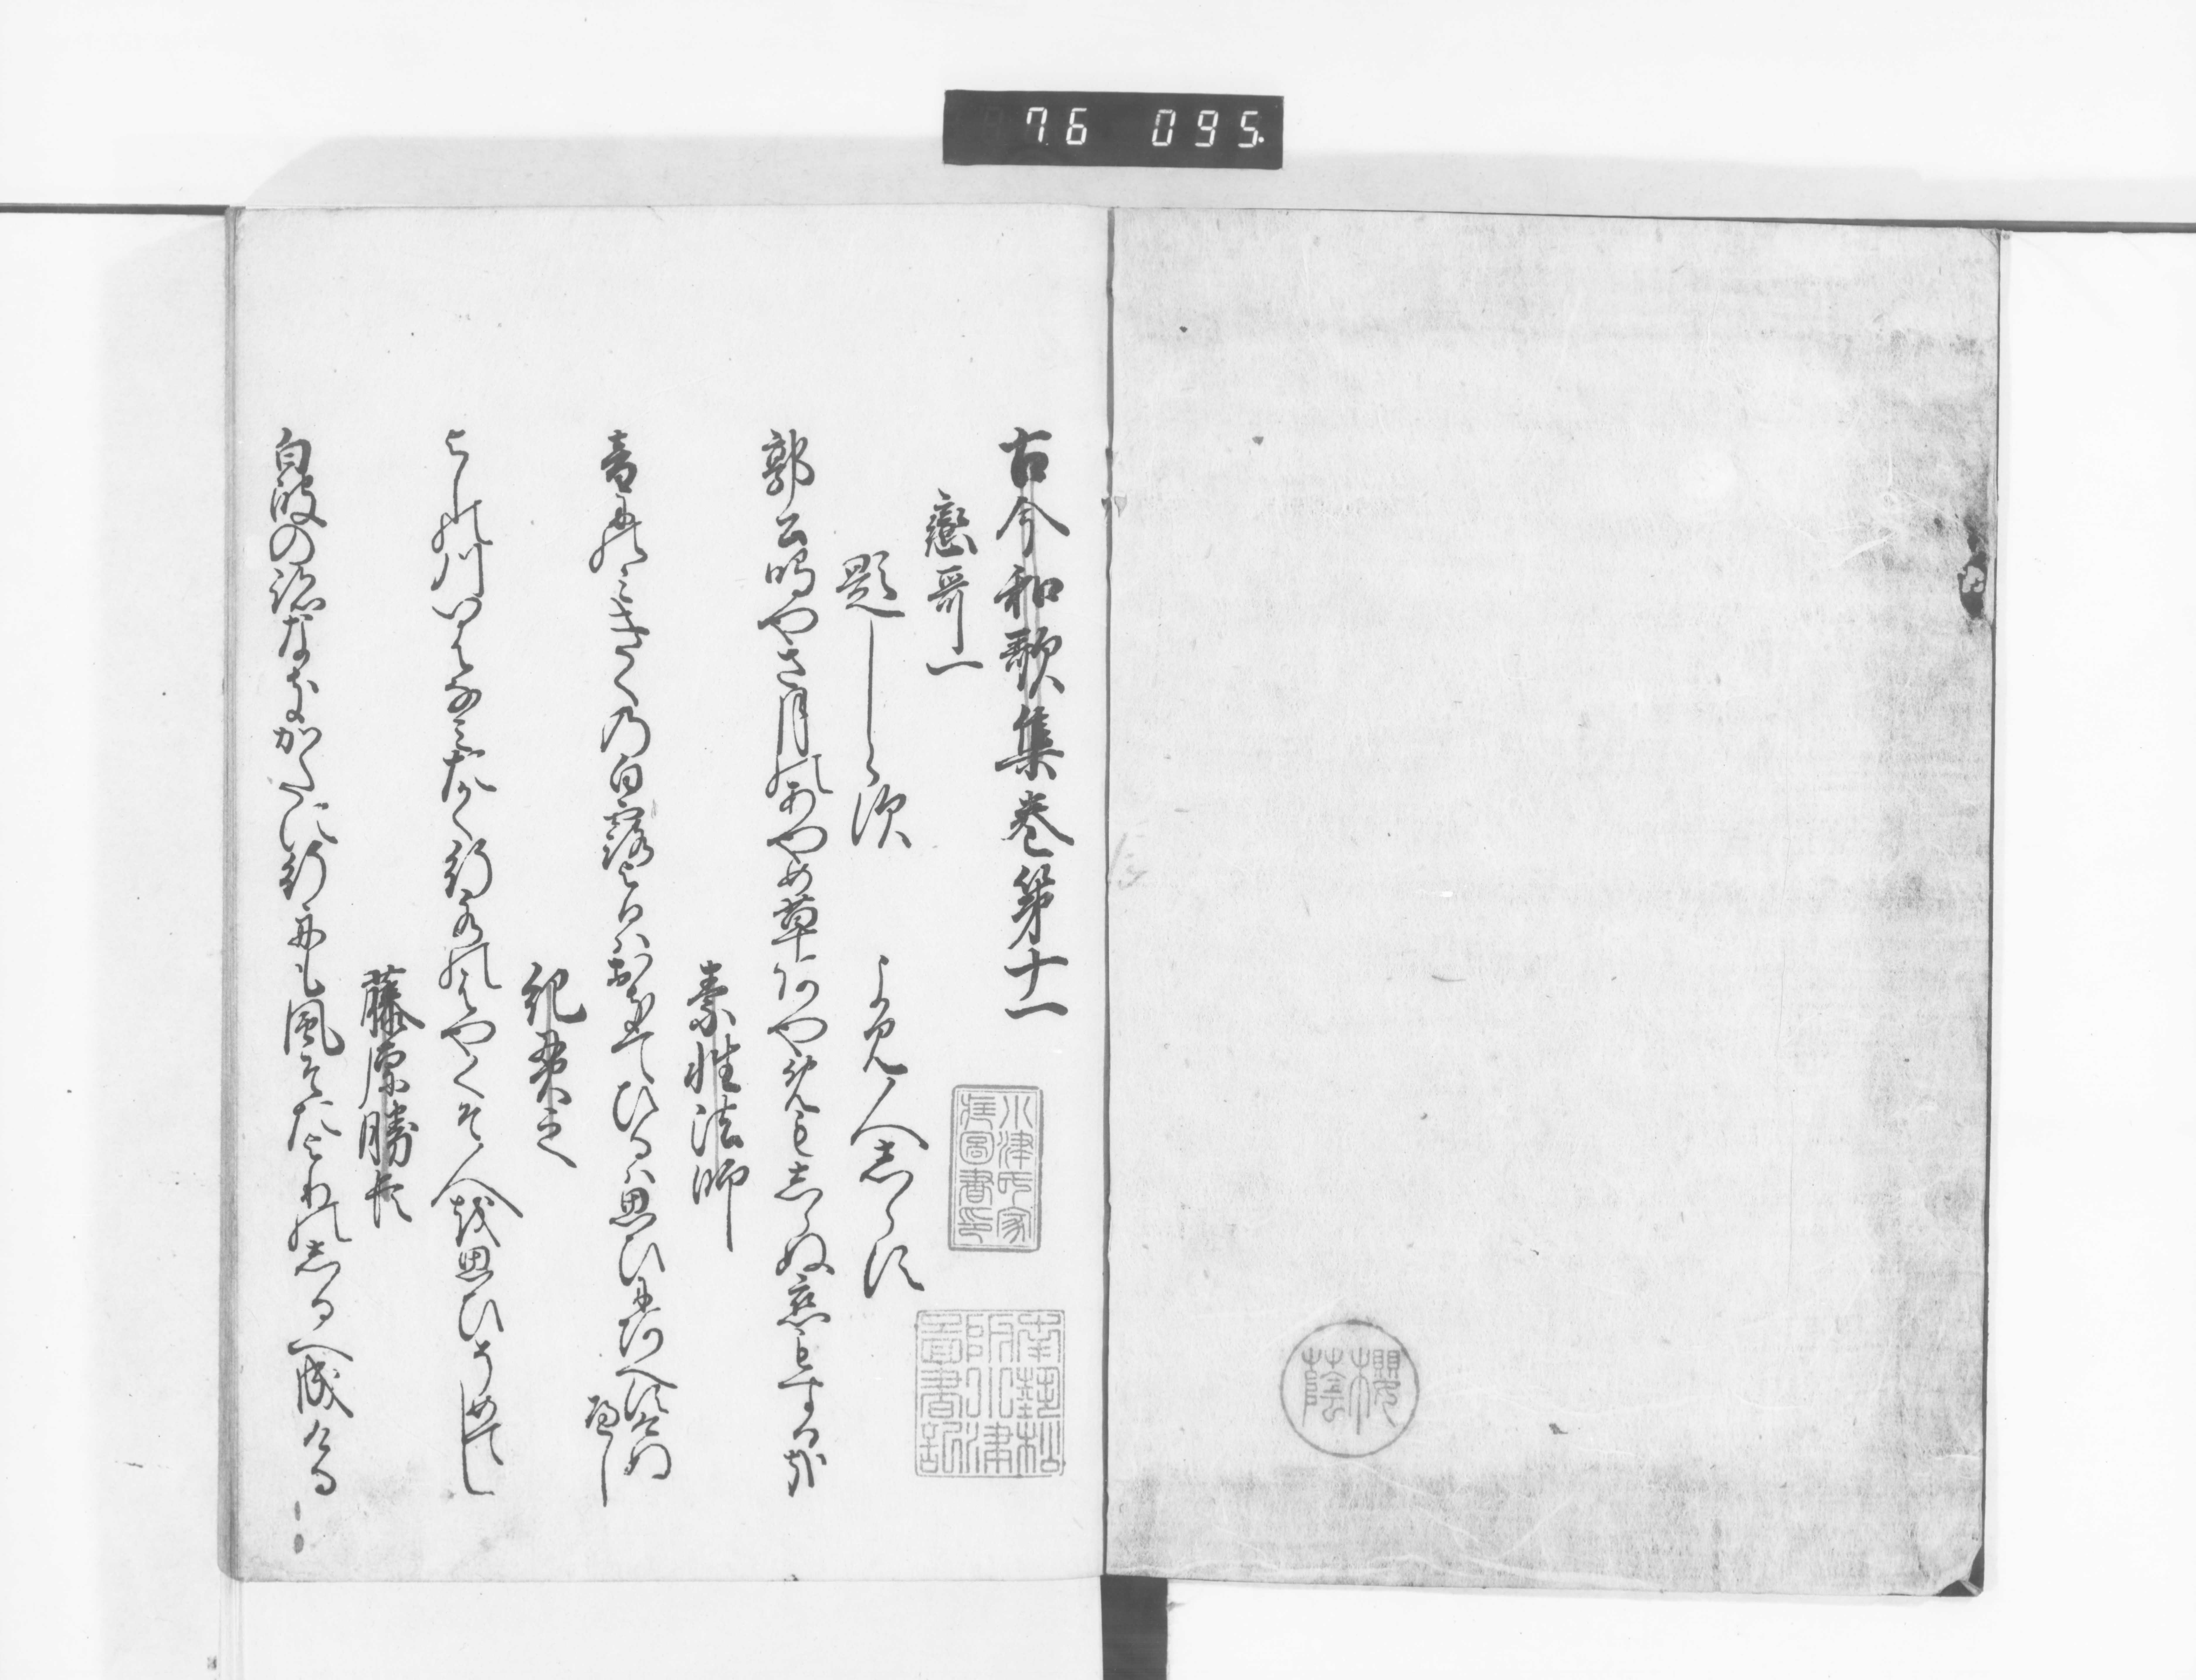 76 095.
古今和歌集巻第十一
戀哥一
題しら須
よみ人志らす
郭公鳴やさ月のあやめ草あやめも志らぬ恋もする哉
素性法師
音にのミきくの白露よるハおきてひるハ思ひにあへすけぬ
へし
紀貫之
よしの川いはなミたかく行水のはやくそ人を思ひそめてし
藤原勝臣
白波の跡なきかたに行舟も風そたよりのしるへ成ける
小津氏家
蔵圖書印
南勢松
阪小津
圖書記
櫻
蔭